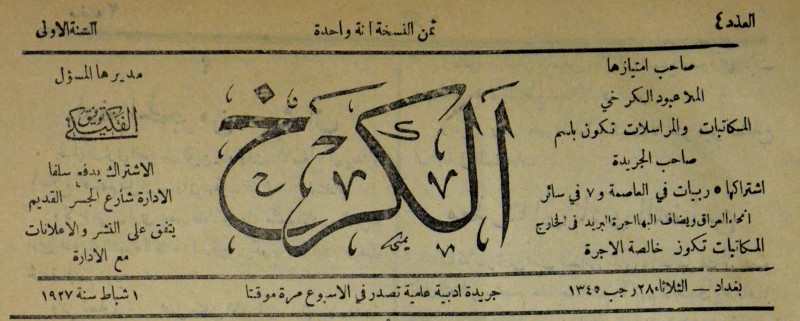 العدد ٤
ثمن النسخة آنة واحدة
السنة الاولى
صاحب امتيازها
الملا عبود الكرخي
المكاتبات والمراسلات تكون باسم
صاحب الجريدة
اشتراكها ٥ ربيات في العاصمة و ٧ في سائر
انحاء العراق ويضاف اليها اجرة البريد في الخارج
المكاتبات تكون خالصة الاجرة
الكرخ
مديرها المسؤل
توفيق الفكيكي
الاشتراك يدفع سلفا
الادارة شارع الجسر القديم
يتفق على النشر والاعلانات
مع الادارة
بغداد — الثلاثاء ٢٨ رجب ١٣٤٥
جريدة ادبية علمية تصدر في الاسبوع مرة موقتا
١ شباط سنة ١٩٢٧